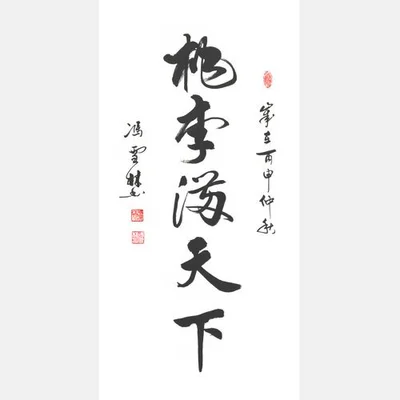 歲在丙申仲秋
桃李满天下
冯雪